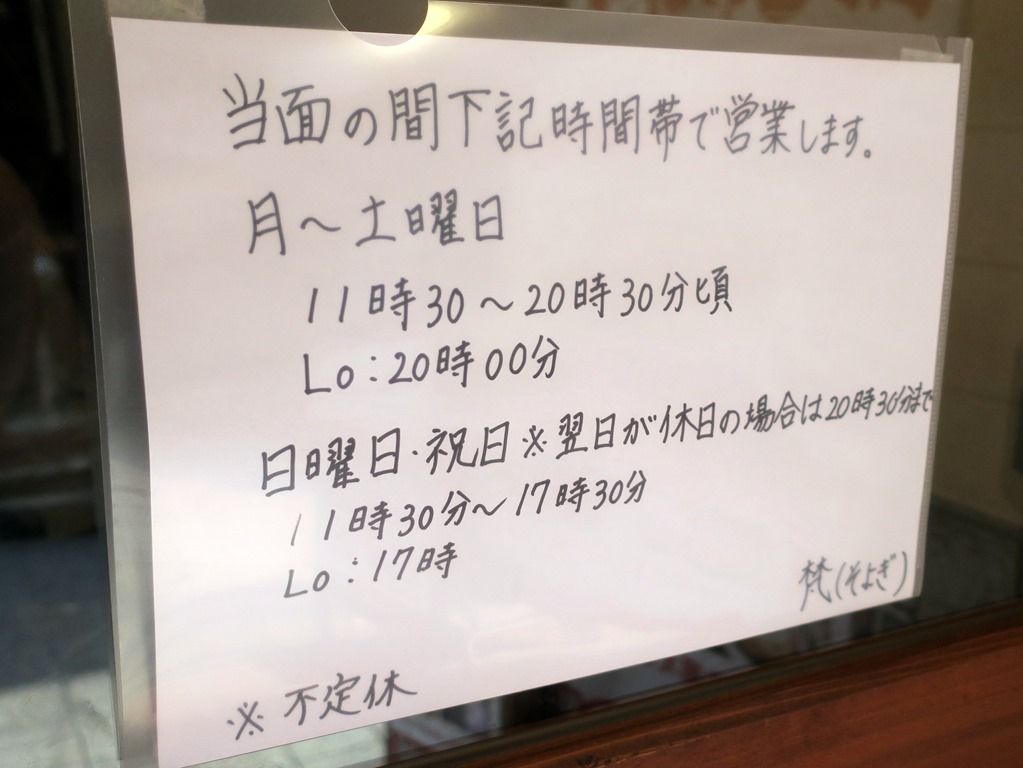 当面の間下記時間帯で営業します。
月～土曜日
11時30～20時30分頃
Lo:20時00分
日曜日・祝日※翌日が休日の場合は20時30分まで
11時30分～17時30分
Lo:17時
梵(そよぎ)
※不定休